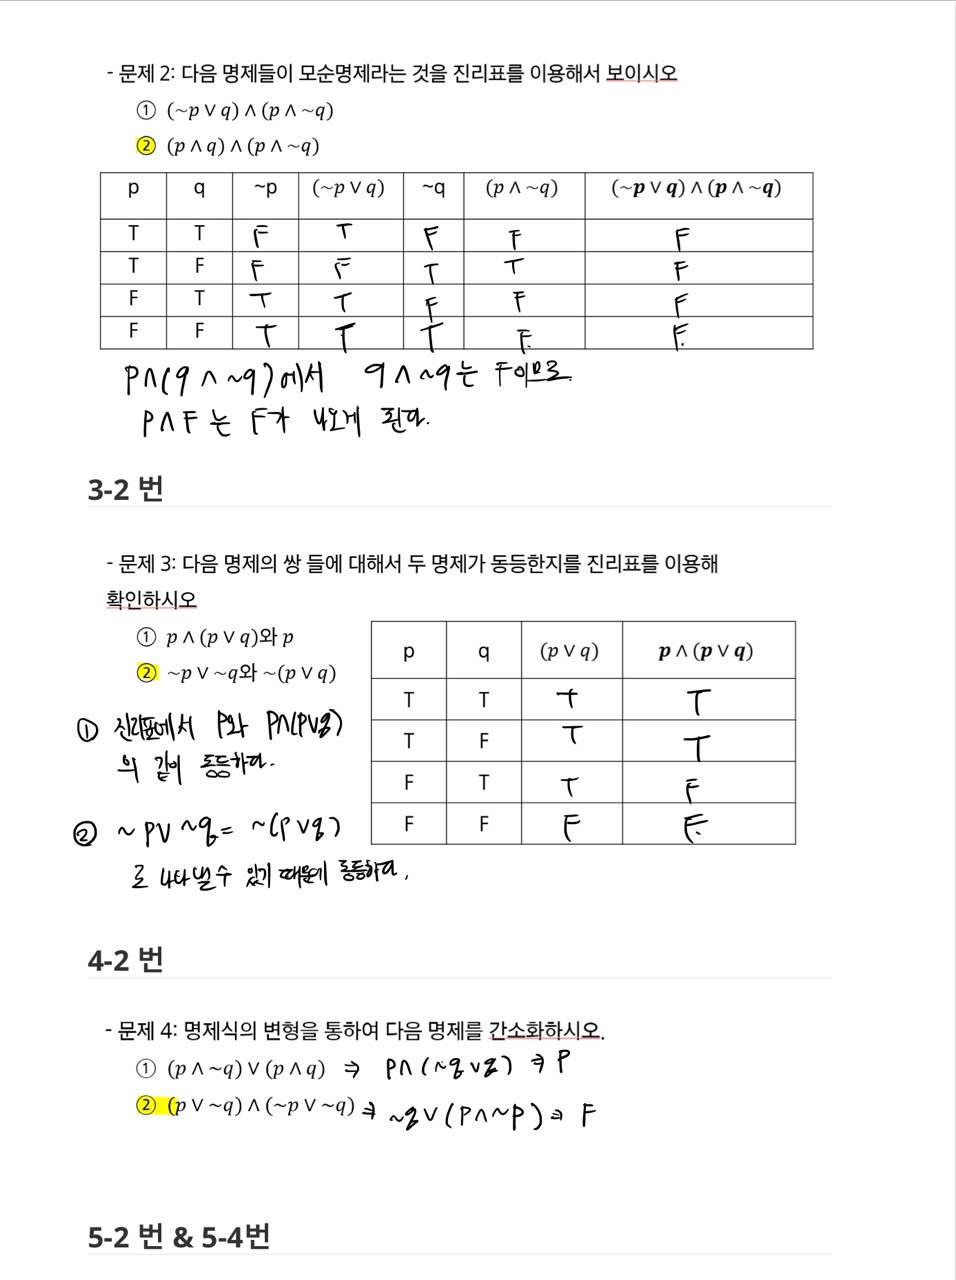 - 문제 2: 다음 명제들이 모순명제라는 것을 진리표를 이용해서 보이시오
① (~p ∨ q) ∧ (p ∧ ~q)
② (p ∧ q) ∧ (p ∧ ~q)
p q ~p (~p ∨ q) ~q (p ∧ ~q) (~p ∨ q) ∧ (p ∧ ~q)
T T F T F F F
T F F F T T F
F T T T F F F
F F T T T F. F.
P∧(q ∧ ~q)에서 q∧~q는 F이므로
P∧F는 F가 나오게 된다.
3-2 번
- 문제 3: 다음 명제의 쌍 들에 대해서 두 명제가 동등한지를 진리표를 이용해
확인하시오
① p ∧ (p ∨ q)와 p
② ~p ∨ ~q와 ~(p ∨ q)
p q (p ∨ q) p ∧ (p ∨ q)
T T T T
T F T T
F T T F
F F F F.
① 진리표에서 P와 P∧(P∨q)
의 값이 동등하다.
② ~P∨~q = ~(P∨q)
로 나타낼수 있기 때문에 동등하다.
4-2 번
- 문제 4: 명제식의 변형을 통하여 다음 명제를 간소화하시오.
① (p ∧ ~q) ∨ (p ∧ q) ⇒ P∧(~q∨q) ⇒ P
② (p ∨ ~q) ∧ (~p ∨ ~q) ⇒ ~q∨(P∧~P) ⇒ F
5-2 번 & 5-4번